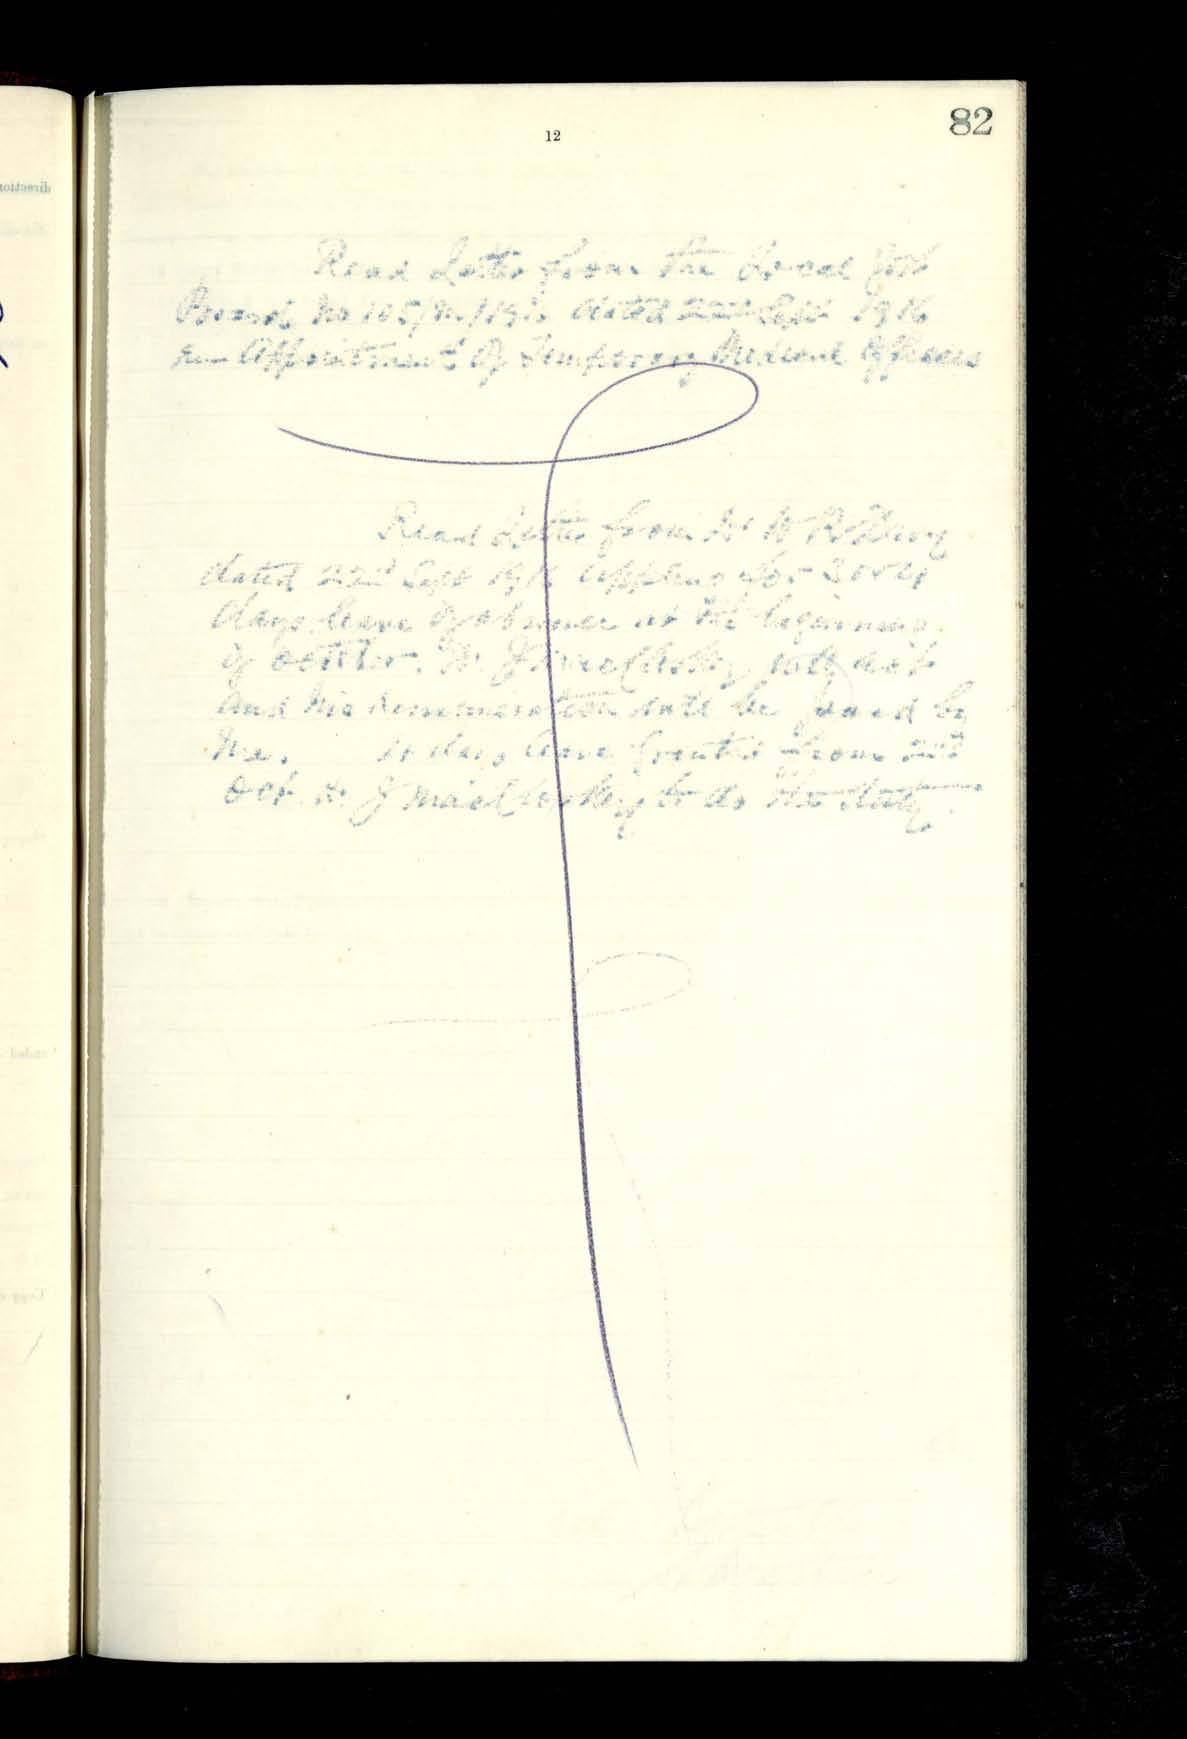 82
12
Read Letter from the Local Govt
Board No 105/M/191 dated 22nd Sept 1916
Appointment of Temporary Medical Officers
Read Letter from Dr
dated 22nd Sept 1916 applying for 3 or 4
days leave of absence at the beginning
of October. Dr J MacCloskey will act
and his remuneration will be paid by
Me. days leave granted from
Oct Dr J MacCloskey to do the duty